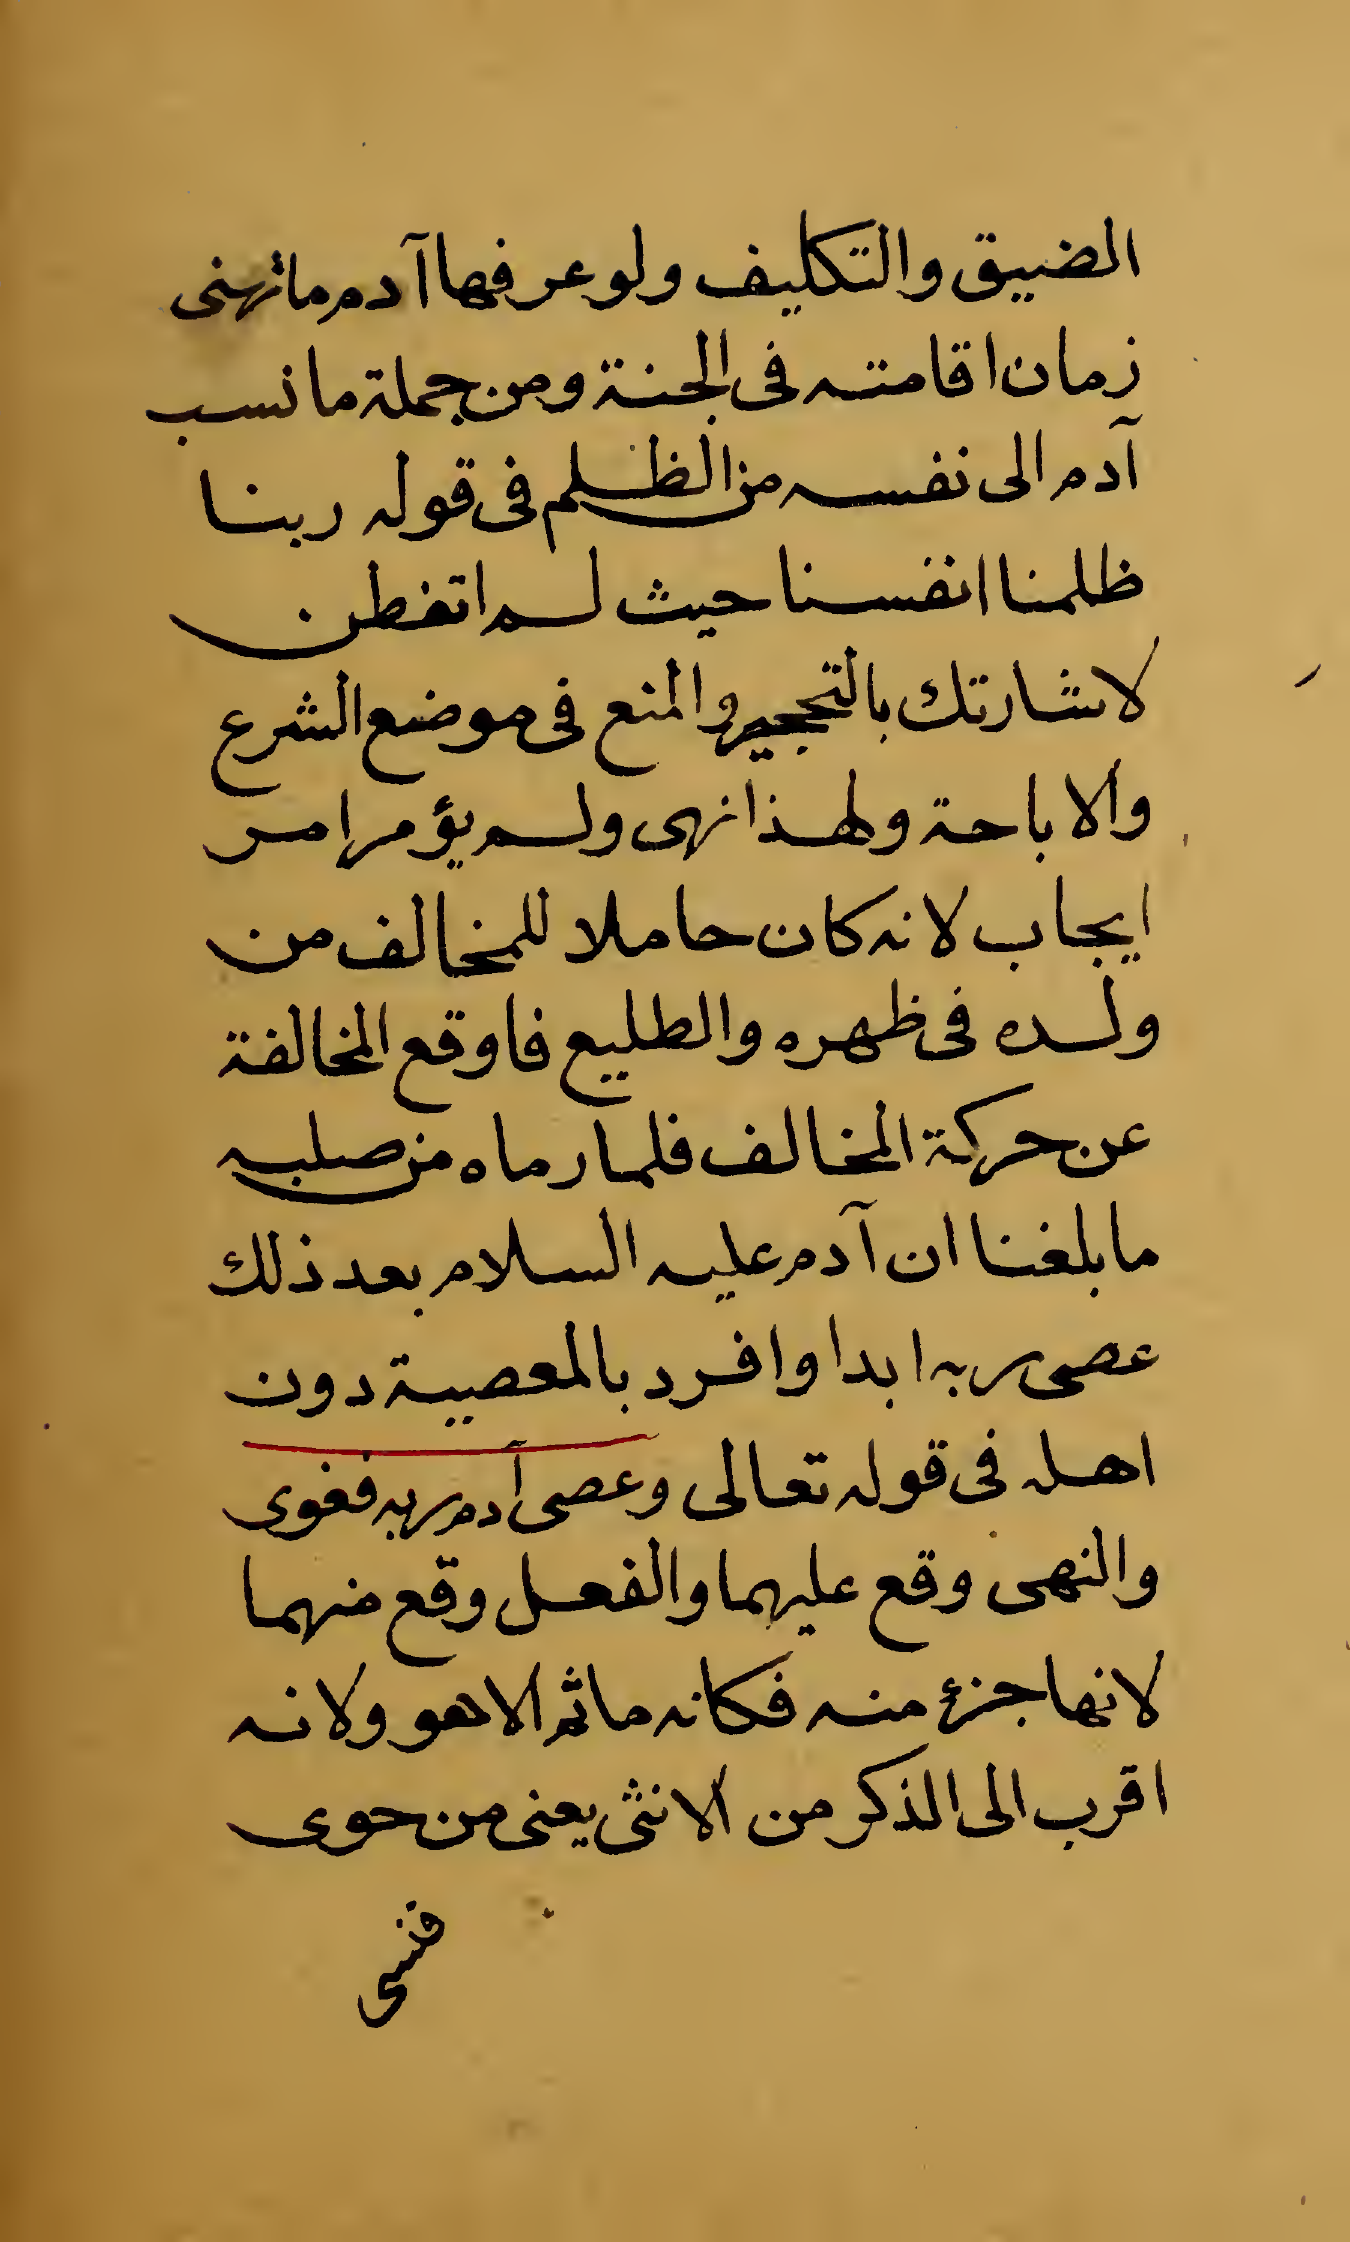 الضيق والتكليف ولو عرفها آدم ما تهنى
زمان اقامته فى الجنة ومن جملة ما نسب
آدم الى نفسه من الظلم فى قوله ربنا
ظلمنا انفسنا حيث لم اتفطن
لاشارتك بالتحجير والمنع فى موضع الشرع
والاباحة ولهذا نهى ولم يؤمر امر
ايجاب لانه كان حاملا للمخالف من
ولده فى ظهره والطليع فاوقع المخالفة
عن حركة المخالف فلما رماه من صلبه
ما بلغنا ان آدم عليه السلام بعد ذلك
عصى ربه ابدا وافرد بالمعصية دون
اهله فى قوله تعالى وعصى آدم ربه فغوى
والنهى وقع عليهما والفعل وقع منهما
لانها جزئ منه فكانه ما ثم الا هو ولانه
اقرب الى الذكر من الانثى يعنى من حوى
فنسى